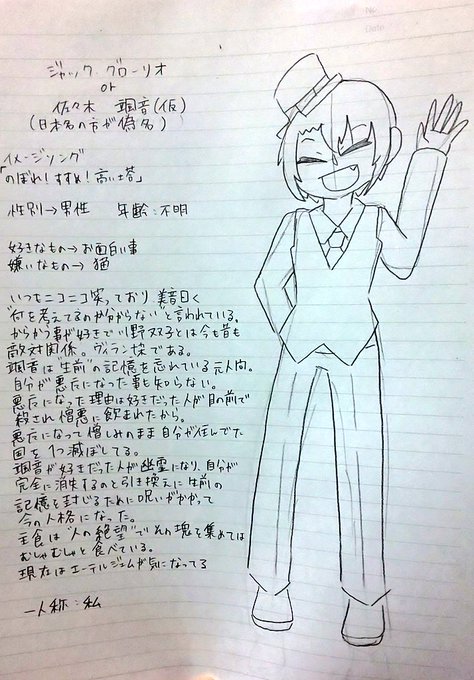 ジャック グローリオ
or
佐々木 颯音(仮)
(日本名の方が偽名)
イメージソング
「のぼれ!すすめ!高い塔」
性別→男性 年齢:不明
好きなもの→お面白い事
嫌いなもの→猫
いつもニコニコ笑っており 美音曰く
"何を考えてるのか分からない"と言われている。
からかう事が好きで小野双子とは今も昔も
敵対関係。ヴィラン枠である。
颯音は"生前"の記憶を忘れている元人間。
自分が悪になった事も知らない。
悪になった理由は好きだった人が目の前で
殺され憎悪に飲まれたから。
悪になって憎しみのまま自分が住んでた
国を1つ滅ぼしてる。
颯音が好きだった人が幽霊になり、自分が
完全に消失するのと引き換えに生前の
記憶を封じるために呪いがかかって
今の人格になった。
主食は"人の絶望"でその塊を集めては
むしゃむしゃと食べている。
現在はエーテルジェムが気になってる
一人称:私
No.
Date